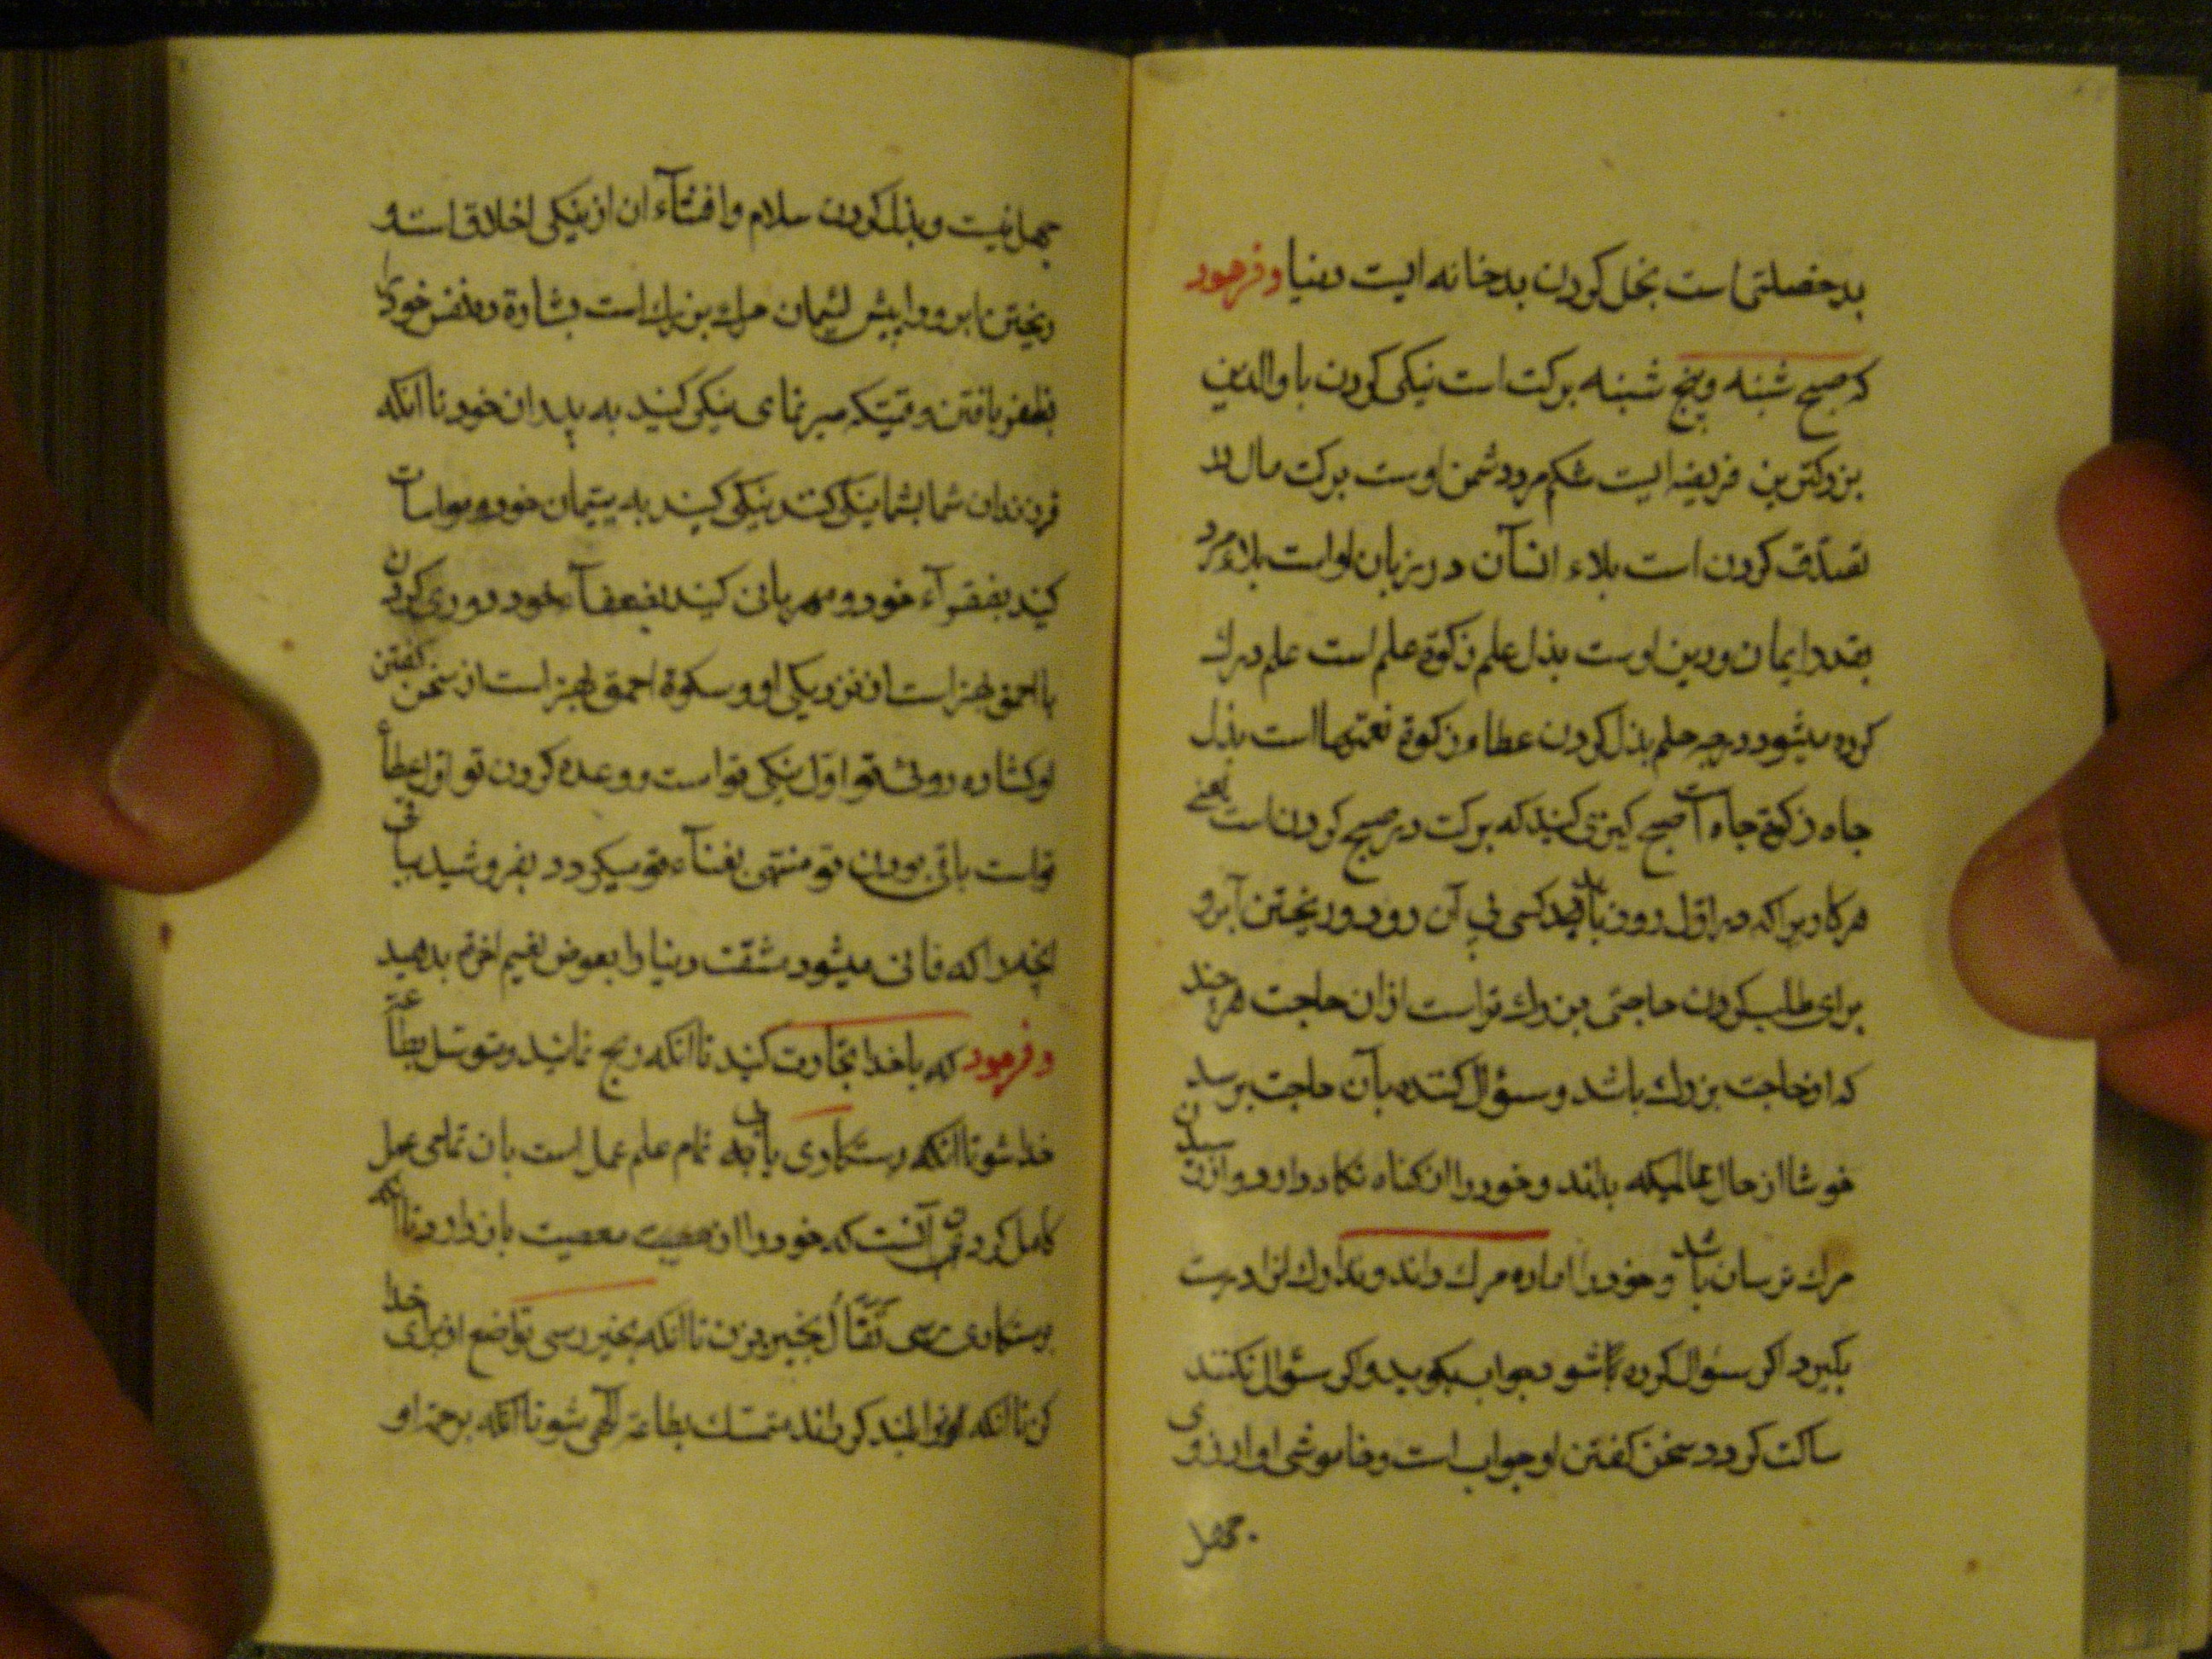 بدخصلتی است بخل کردن بدخانه ایست دنیا و فرمود
که صبح شنبه و پنج شنبه برکت است نیکی کردن با والدین
بزرکترین فریضه ایست شکم مرد دشمن اوست برکت مال در
تصدّق کردن است بلاء انسآن در زبان او است بلاء مرد
بقدر ایمان و دین اوست بذل علم زکوة علم است علم درک
کرده میشود درجه حلم بذل کردن عطا زکوة نعمتها است بذل
جاه زکوة جاه است صبح کیزی کنید که برکت در صبح کردن است یعنی
هر کاریرا که در اوّل روز باید کسی پی آن رود و ریختن آبرو
برای طلب کردن حاجتی بزرک تر است از ان حاجت هر چند
که ان حاجت بزرک باشد و سؤال کننده بآن حاجت برسد
خوشا از حال عالمیکه بداند و خود را از کناه نکاه دارد و از رسیدن
مرک ترسان باشد و خود را اماده مرک داند و تدارک انرا درست
بکیرد اکر سؤال کرده شود جواب بکوید و اکر سؤال نکنند
ساکت کردد سخن کفتن او جواب است و خاموشی او از روی
جهل نیست و بذل کردن سلام و افشآء ان از نیکی اخلاق است و
ریختن ابرو پیش لئیمان مرک بزرک است بشارة ده نفس خود را
بظفر یافتن وقتیکه صبر نمای نیکی کنید به پدران خود تا انکه
فرزندان شما بشما نیکی کنند نیکی کنید به یتیمان خود و مواسات
کنید بفقرآء خود و مهربانی کنید بضعفآء خود دوری کردن
با احمق بهتر است از نزدیکی او و سکوة احمق بهتر است از سخن کفتن
او کشاده روئی تو اوّل نیکی تو است و وعده کردن تو اوّل عطاء
تو است باقی بودن تو منتهی بفنآء تو میکردد بفروشید بباقی
انچه را که فانی میشود مشقّت دنیا را بعوض نعیم اخرة بدهید
و فرمود که با خدا تجارت کنید تا انکه ربح نمائید و متوسّل بطاعة
خدا شو تا انکه رستکاری یابی تمام علم عمل است بان تمامی عمل
کامل کردن آنست که خود را از معصیت باز دارد تا انکه
برستکاری رسی تَفَأّل بخیر بزن تا انکه بخیر رسی تواضع از برای خدا
کن تا انکه ترا بلند کرداند متمسّک بطاعة الهی شو تا انکه برحمة او